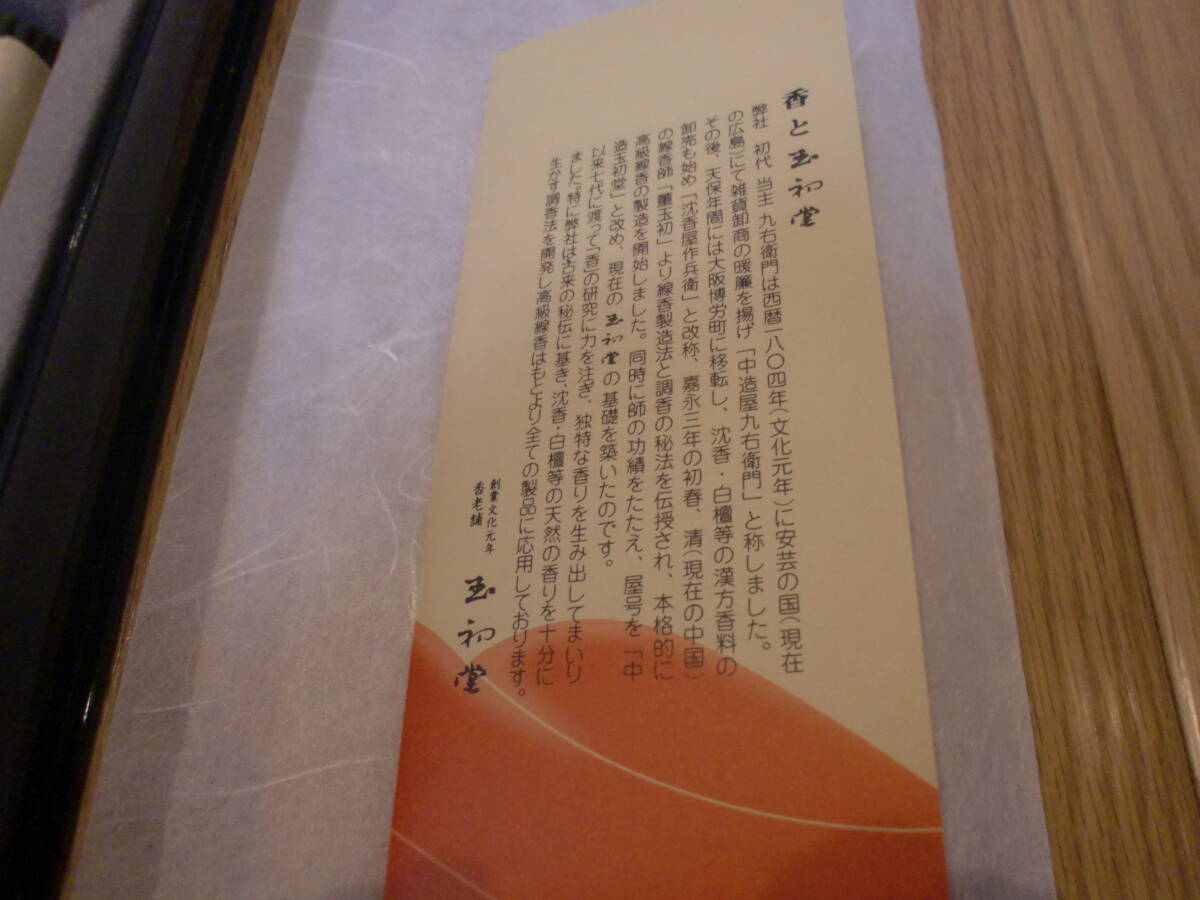 香と玉初堂
弊社 初代 当主 九右衛門は西暦一八〇四年(文化元年)に安芸の国(現在
の広島)にて雑貨卸商の暖簾を揚げ「中造屋九右衛門」と称しました。
その後、天保年間には大阪博労町に移転し、沈香・白檀等の漢方香料の
卸売も始め「沈香屋作兵衛」と改称、嘉永三年の初春、清(現在の中国)
の線香師「董玉初」より線香製造法と調香の秘法を伝授され、本格的に
高級線香の製造を開始しました。同時に師の功績をたたえ、屋号を「中
造玉初堂」と改め、現在の玉初堂の基礎を築いたのです。
以来七代に渡って「香」の研究に力を注ぎ、独特な香りを生み出してまいり
ました。特に弊社は古来の秘伝に基き、沈香・白檀等の天然の香りを十分に
生かす調香法を開発し高級線香はもとより全ての製品に応用しております。
創業文化元年
香老舗
玉初堂